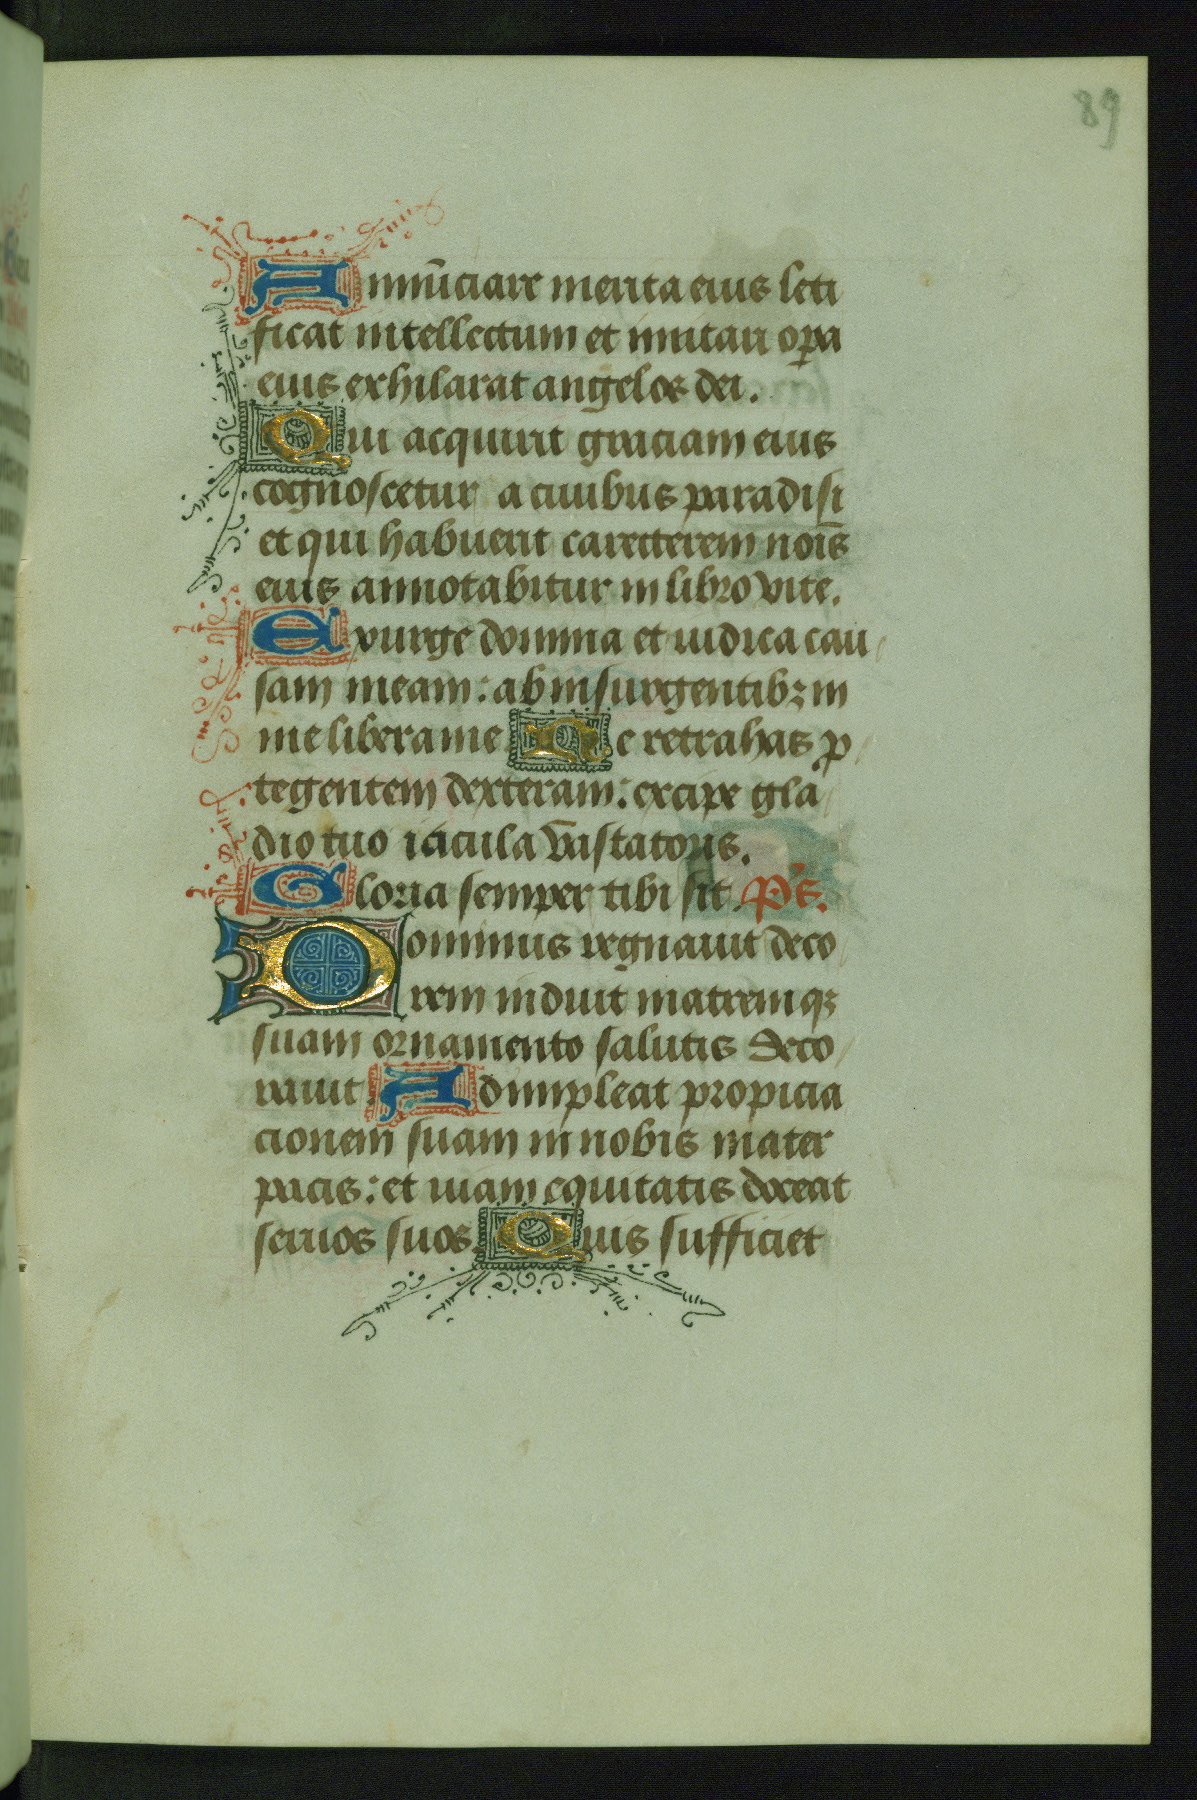 89
Annūciare merita eius leti
ficat intellectum et imitari opa
eius exhilarat angelos dei.
Qui acquirit graciam eius
cognoscetur a ciuibus paradisi
et qui habuerit carecterem nois̄
eius annotabitur in libro vite.
Exurge domina et iudica cau
sam meam: ab insurgentibꝫ in
me libera me Ne retrahas ꝓ
tegentem dexteram: excipe gla
dio tuo iacula vastatoris.
Gloria semper tibi sit. Ps.
Dominus regnauit deco
rem induit matremqꝫ
suam ornamento salutis deco
rauit. Adimpleat propicia
cionem suam in nobis mater
pacis: et uiam equitatis doceat
seruos suos. Quis sufficiet